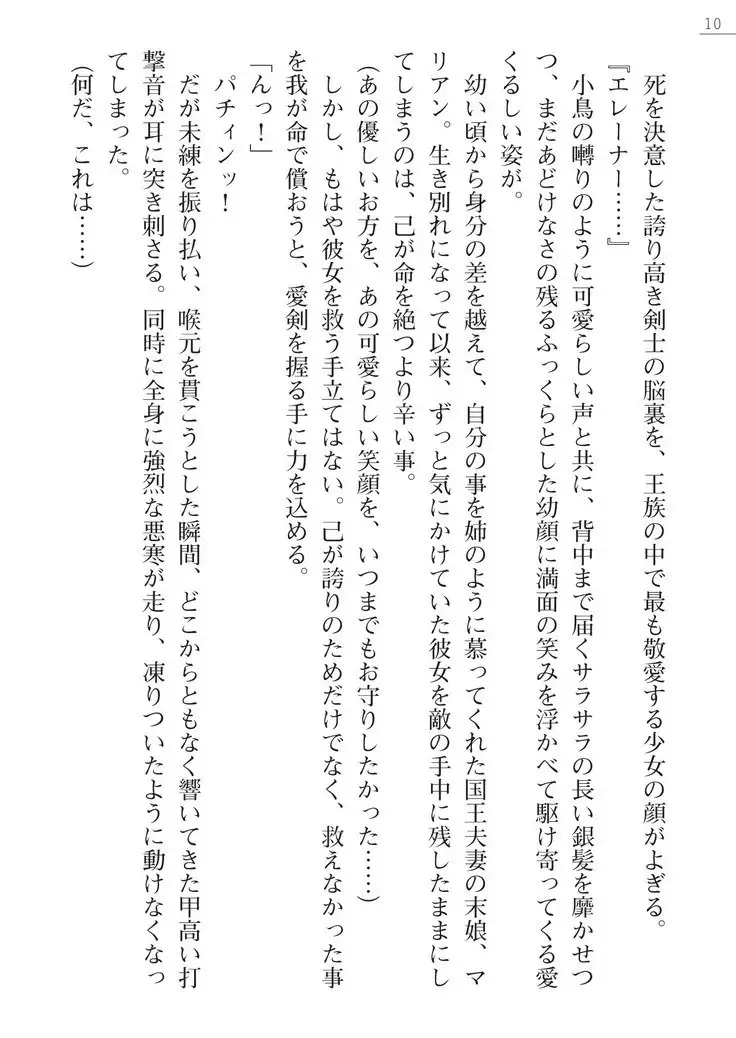 10
死を決意した誇り高き剣士の脳裏を、王族の中で最も敬愛する少女の顔がよぎる。
『エレーナー……』
小鳥の囀りのように可愛らしい声と共に、背中まで届くサラサラの長い銀髪を靡かせつ
つ、まだあどけなさの残るふっくらとした幼顔に満面の笑みを浮かべて駆け寄ってくる愛
くるしい姿が。
幼い頃から身分の差を越えて、自分の事を姉のように慕ってくれた国王夫妻の末娘、マ
リアン。生き別れになって以来、ずっと気にかけていた彼女を敵の手中に残したままにし
てしまうのは、己が命を絶つより辛い事。
（あの優しいお方を、あの可愛らしい笑顔を、いつまでもお守りしたかった……）
しかし、もはや彼女を救う手立てはない。己が誇りのためだけでなく、救えなかった事
を我が命で償おうと、愛剣を握る手に力を込める。
「んっ！」
パチィンッ！
だが未練を振り払い、喉元を貫こうとした瞬間、どこからともなく響いてきた甲高い打
撃音が耳に突き刺さる。同時に全身に強烈な悪寒が走り、凍りついたように動けなくなっ
てしまった。
（何だ、これは……）